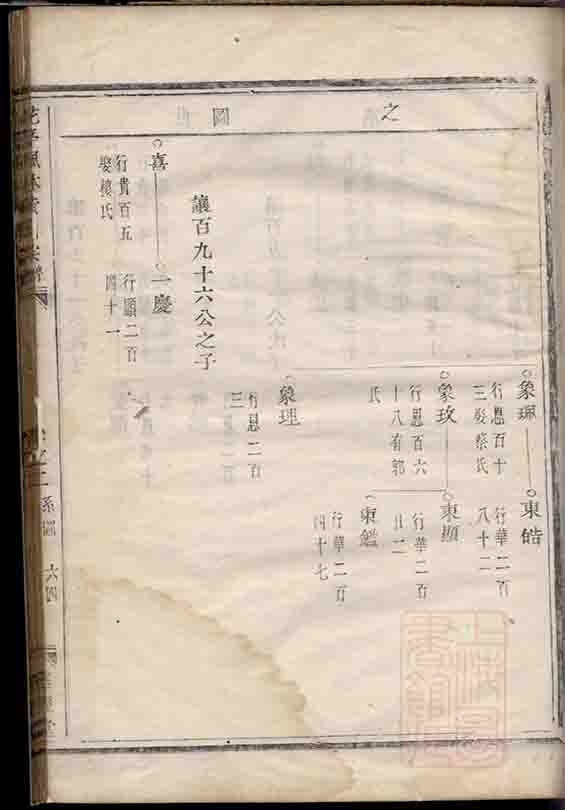 之
圖
象珮
行恩百十
三娶蔡氏
東皓
行華二百
八十二
象玫
行恩百六
十八有郭
氏
東顯
行華二百
廿二
東鑑
行華二百
四十七
象理
行恩二百
三
讓百九十六公之子
喜
行貴百五
娶樓氏
一慶
行顯二百
四十一
系圖
六四